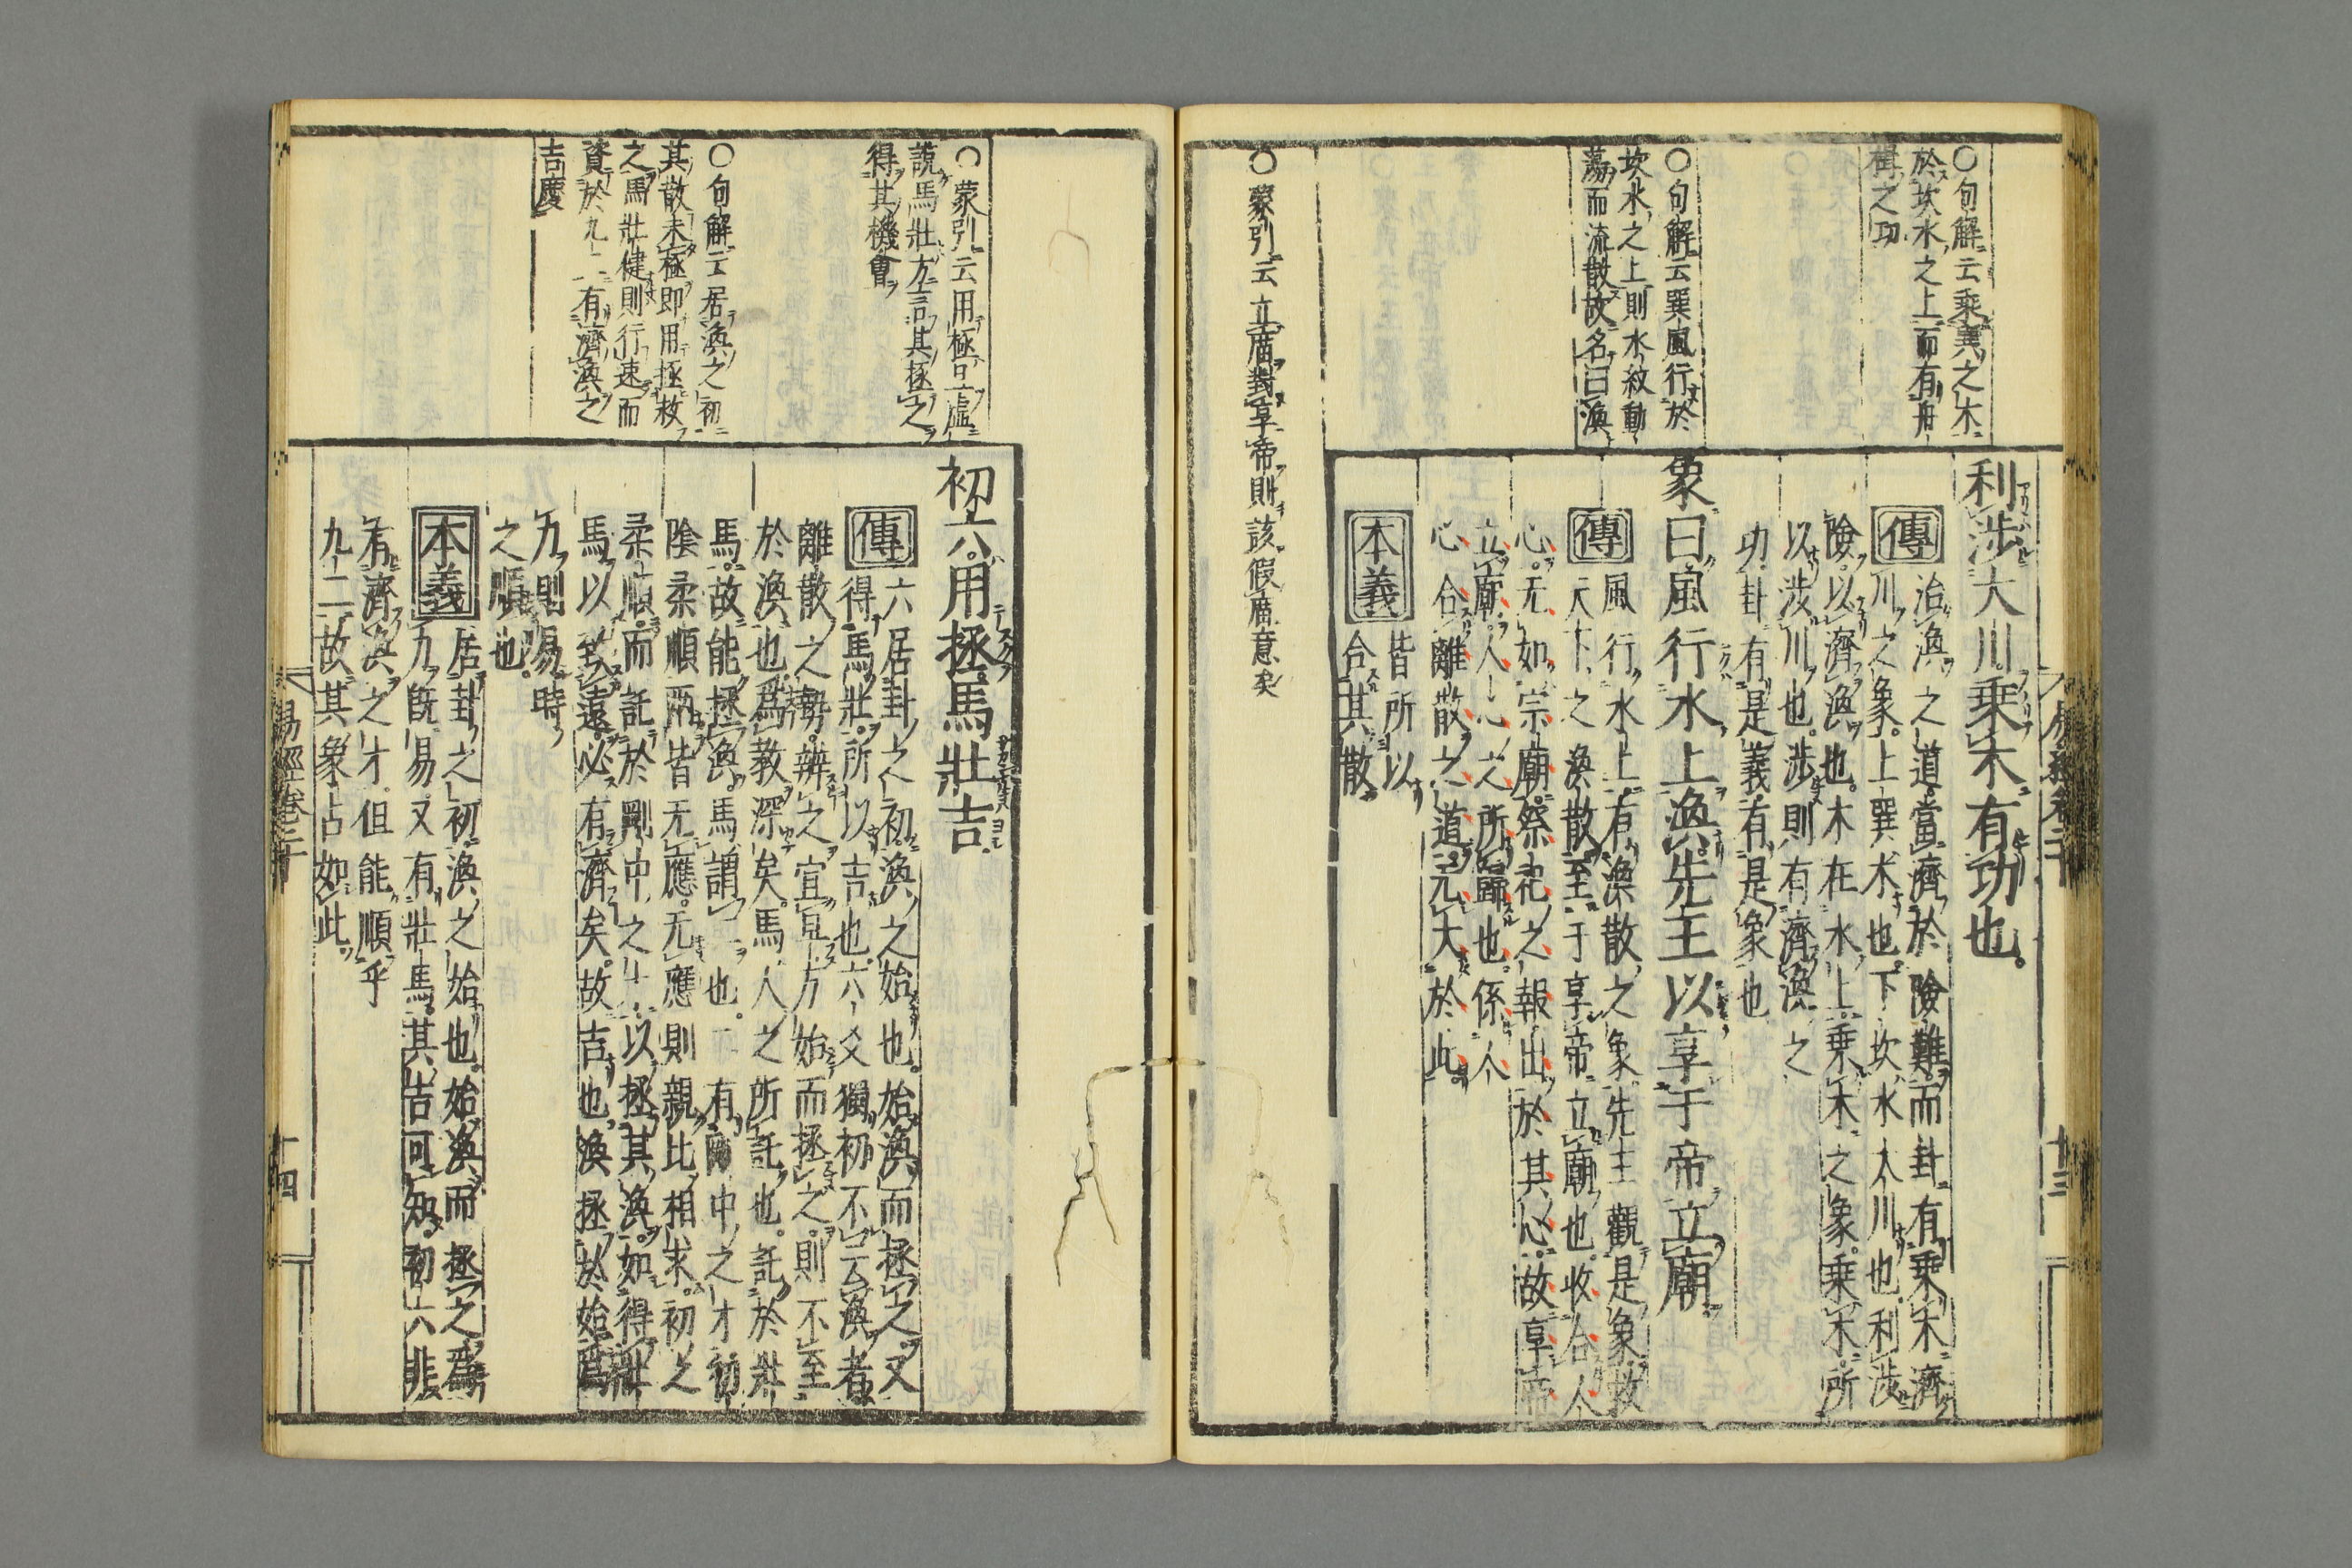 ○句解云乘巽之木
於坎水之上而有舟
楫之功
○句解云巽風行於
坎水之上則水紋動
蕩而流散故名曰渙
○蒙引云立廟對享帝則該假廟意矣
利涉大川乘木有功也。
傳 治渙之道當濟於險難而卦有乘木濟
川之象。上巽木也。下坎水大川也。利涉
險。以濟渙也。木在水上乘木之象。乘木所
以涉川也。涉則有濟渙之
功。卦有是義有是象也
象曰風行水上渙先王以享于帝立廟
傳 風行水上有渙散之象先王觀是象救
天下之渙散至于享帝立廟也。收合人
心。无如宗廟。祭祀之報出於其心。故享帝
立廟。人心之所歸也。係人
心合離散之道。无大於此。
本義 皆所以
合其散。
易經卷二十
十三
○蒙引云用極只虛
說馬壯方言其拯之
得其機會
○句解云居渙之初
其散未極即用拯救
之馬壯健則行速而
資於九二有濟渙之
吉慶
初六。用拯馬壯吉
傳 六居卦之初渙之始也。始渙而拯之又
得馬壯。所以吉也。六爻獨初不云渙者
離散之勢。辨之宜早。方始而拯之。則不至
於渙也。爲教深矣。馬人之所託也。託於壯
馬。故能拯渙。馬謂二也。二有剛中之才初
陰柔順兩皆无應。无應則親比相求。初之
柔順。而託於剛中之才。以拯其渙。如得壯
馬以致遠。必有濟矣。故吉也。渙拯於始爲
力則易。時
之順也。
本義 居卦之初渙之始也。始渙而拯之爲
力旣易。又有壯馬。其吉可知。初六非
有濟渙之才。但能順乎
九二故其象占如此。
易經卷二十
十四